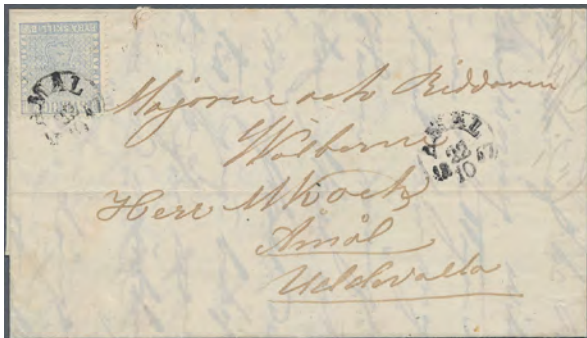 ÅMÅL
22
10
Majoren och Riddaren
Wälborne
Herr M Koch
Åmål
Uddevalla
ÅMÅL
22
10